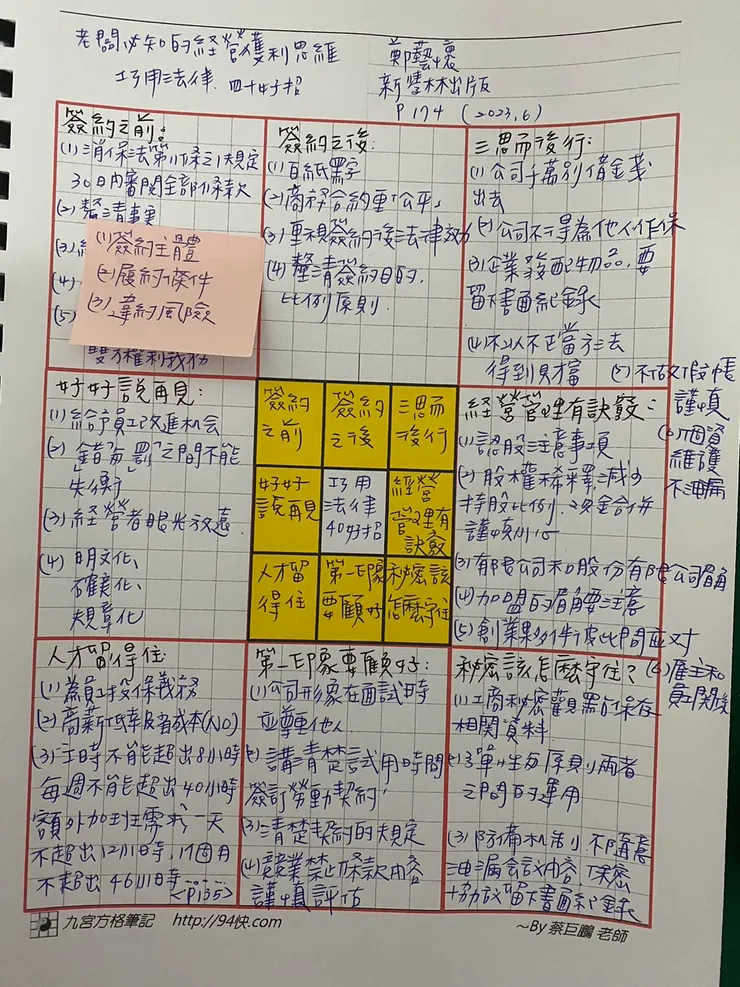 老闆必知的經營獲利思維
巧用法律 四十好招
鄭藝懷
新學林出版
P174 (2023,6)
簽約之前:
(1) 消保法第11條之1規定
30日內審閱全部條款
(2) 釐清事實
(3)
(4)
(5)
雙方權利義務
(1) 簽約主體
(2) 履約條件
(3) 違約風險
簽約之後:
(1) 白紙黑字
(2) 商務合約重「公平」
(3) 重視簽約後法律效力
(4) 釐清簽約目的,
比例原則
三思而後行:
(1) 公司千萬別借金錢
出去
(2) 公司不得為他人作保
(3) 企業務配物品,要
留書面紀錄
(4) 不以不正當方法
得到財擋
(5) 不做假帳
好好說再見:
(1) 給予員工改進機会
(2) 「錯」與「罰」之間不能
失衡
(3) 經營者眼光放遠
(4) 明文化、
確實化、
規章化
簽約
之前
簽約
之後
三思而
後行
好好
說再見
巧用
法律
40好招
經營
管理有
訣竅
人才留
得住
第一印象
要顧好
秘密該
怎麼守住
經營管理有訣竅:
(1) 認股注意事項
(2) 股權稀釋:減少
持股比例,資金合併
謹慎小心
(3) 有限公司和股份有限公司眉角
(4) 加盟的眉角要注意
(5) 創業夥伴彼此間應对
謹慎
(6) 個資
維護
不洩漏
人才留得住
(1) 為員工投保義務
(2) 高薪低報省成本(NO)
(3) 工時不能超出8小時
每週不能超出40小時
額外加班需求一天
不超出12小時,1個月
不超出46小時
<P135>
第一印象要顧好:
(1) 公司形象在面試時
並尊重他人
(2) 講清楚試用時間
簽訂勞動契約
(3) 清楚契約的規定
(4) 競業禁止條款內容
謹慎評估
秘密該怎麼守住?
(1) 工商秘密觀罩能保存
相關資料
(3) 防備机制,不隨意
洩漏会議內容,保密
協議留書面紀錄
(6) 雇主和
員工關係
九宮方格筆記 http://94快.com
~By 蔡巨鵬 老師